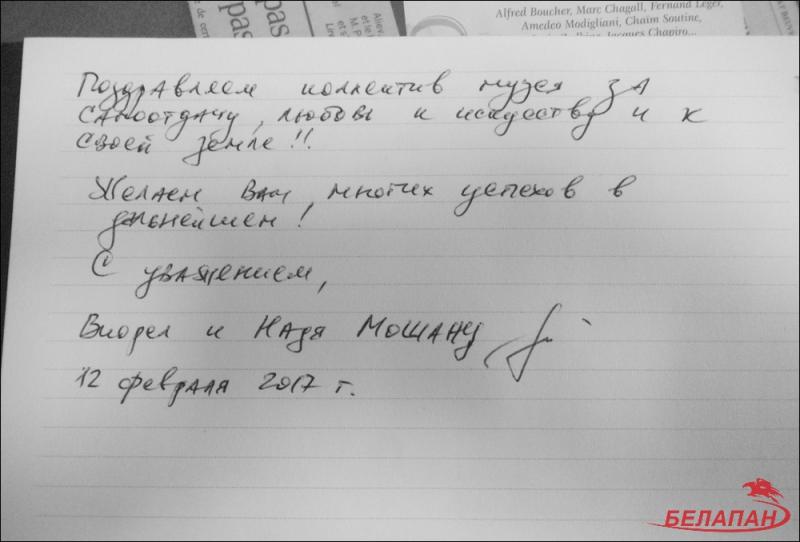 Alfred Boucher, Marc Chagall, Fernand Léger,
Amedeo Modigliani, Chaïm Soutine,
Jacques Chapiro...
Поздравляем коллектив музея за
самоотдачу, любовь к искуству и к
своей земле!!
Желаем Вам многих успехов в
дальнейшем!
С уважением,
Виорел и Надя Мошану
12 февраля 2017 г.
БЕЛАПАН